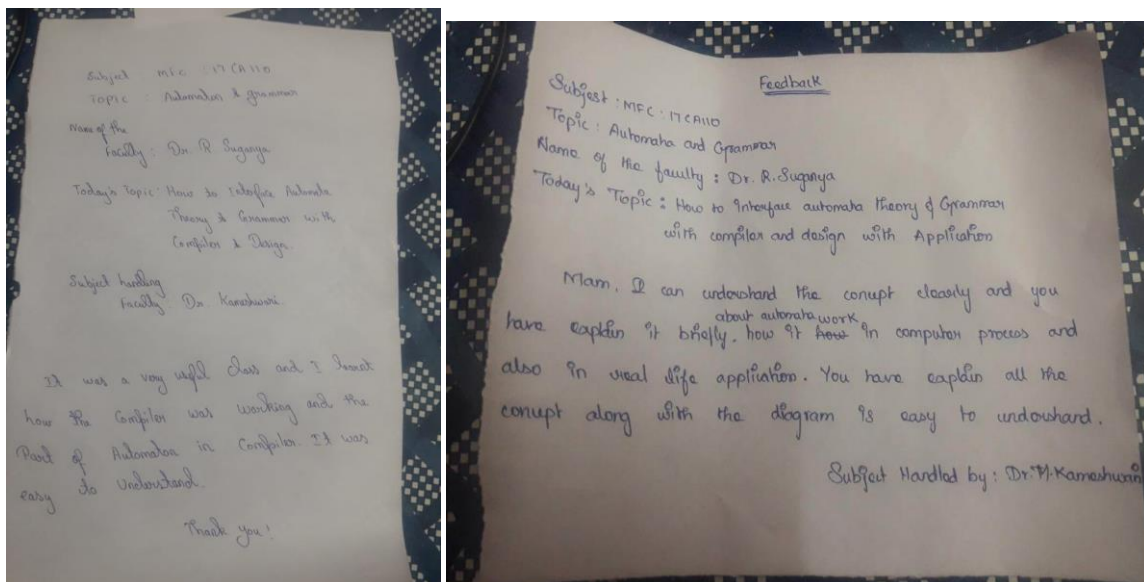 Subject MFC : 17CA110
Topic : Automaton & grammar
Name of the
Faculty : Dr. R Suganya
Today's Topic : How to Interface Automata
Theory & Grammar with
Compiler & Design.
Subject handling
Faculty : Dr. Kameshwari.
It was a very useful class and I learnt
how the Compiler was working and the
Part of Automaton in Compiler. It was
easy to understand.
Thank you!
Feedback
Subject : MFC : 17CA110
Topic : Automata and Grammar
Name of the faculty : Dr. R. Suganya
Today's Topic : How to Interface automata theory & Grammar
with compiler and design with Application
Mam, I can understand the conupt clearly and you
about automata work
have explain it briefly. how it how in computer process and
also in real life application. You have explain all the
conupt along with the diagram is easy to understand.
Subject Handled by : Dr. M. Kameshwari